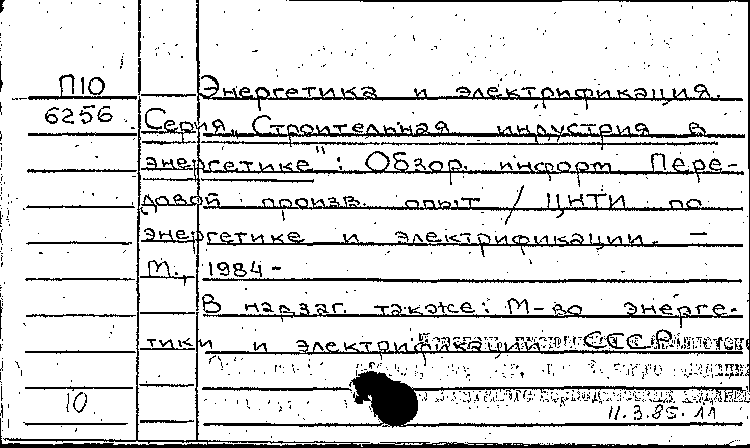 П10 Энергетика и электрификация.
6256 Серия "Строительная индустрия в
энергетике": Обзор. информ Пере-
довой произв. опыт / ЦНТИ по
энергетике и электрификации. —
М., 1984-
В надзаг. также: М-во энерге-
тики и электрификации СССР
10
11.3.85.11